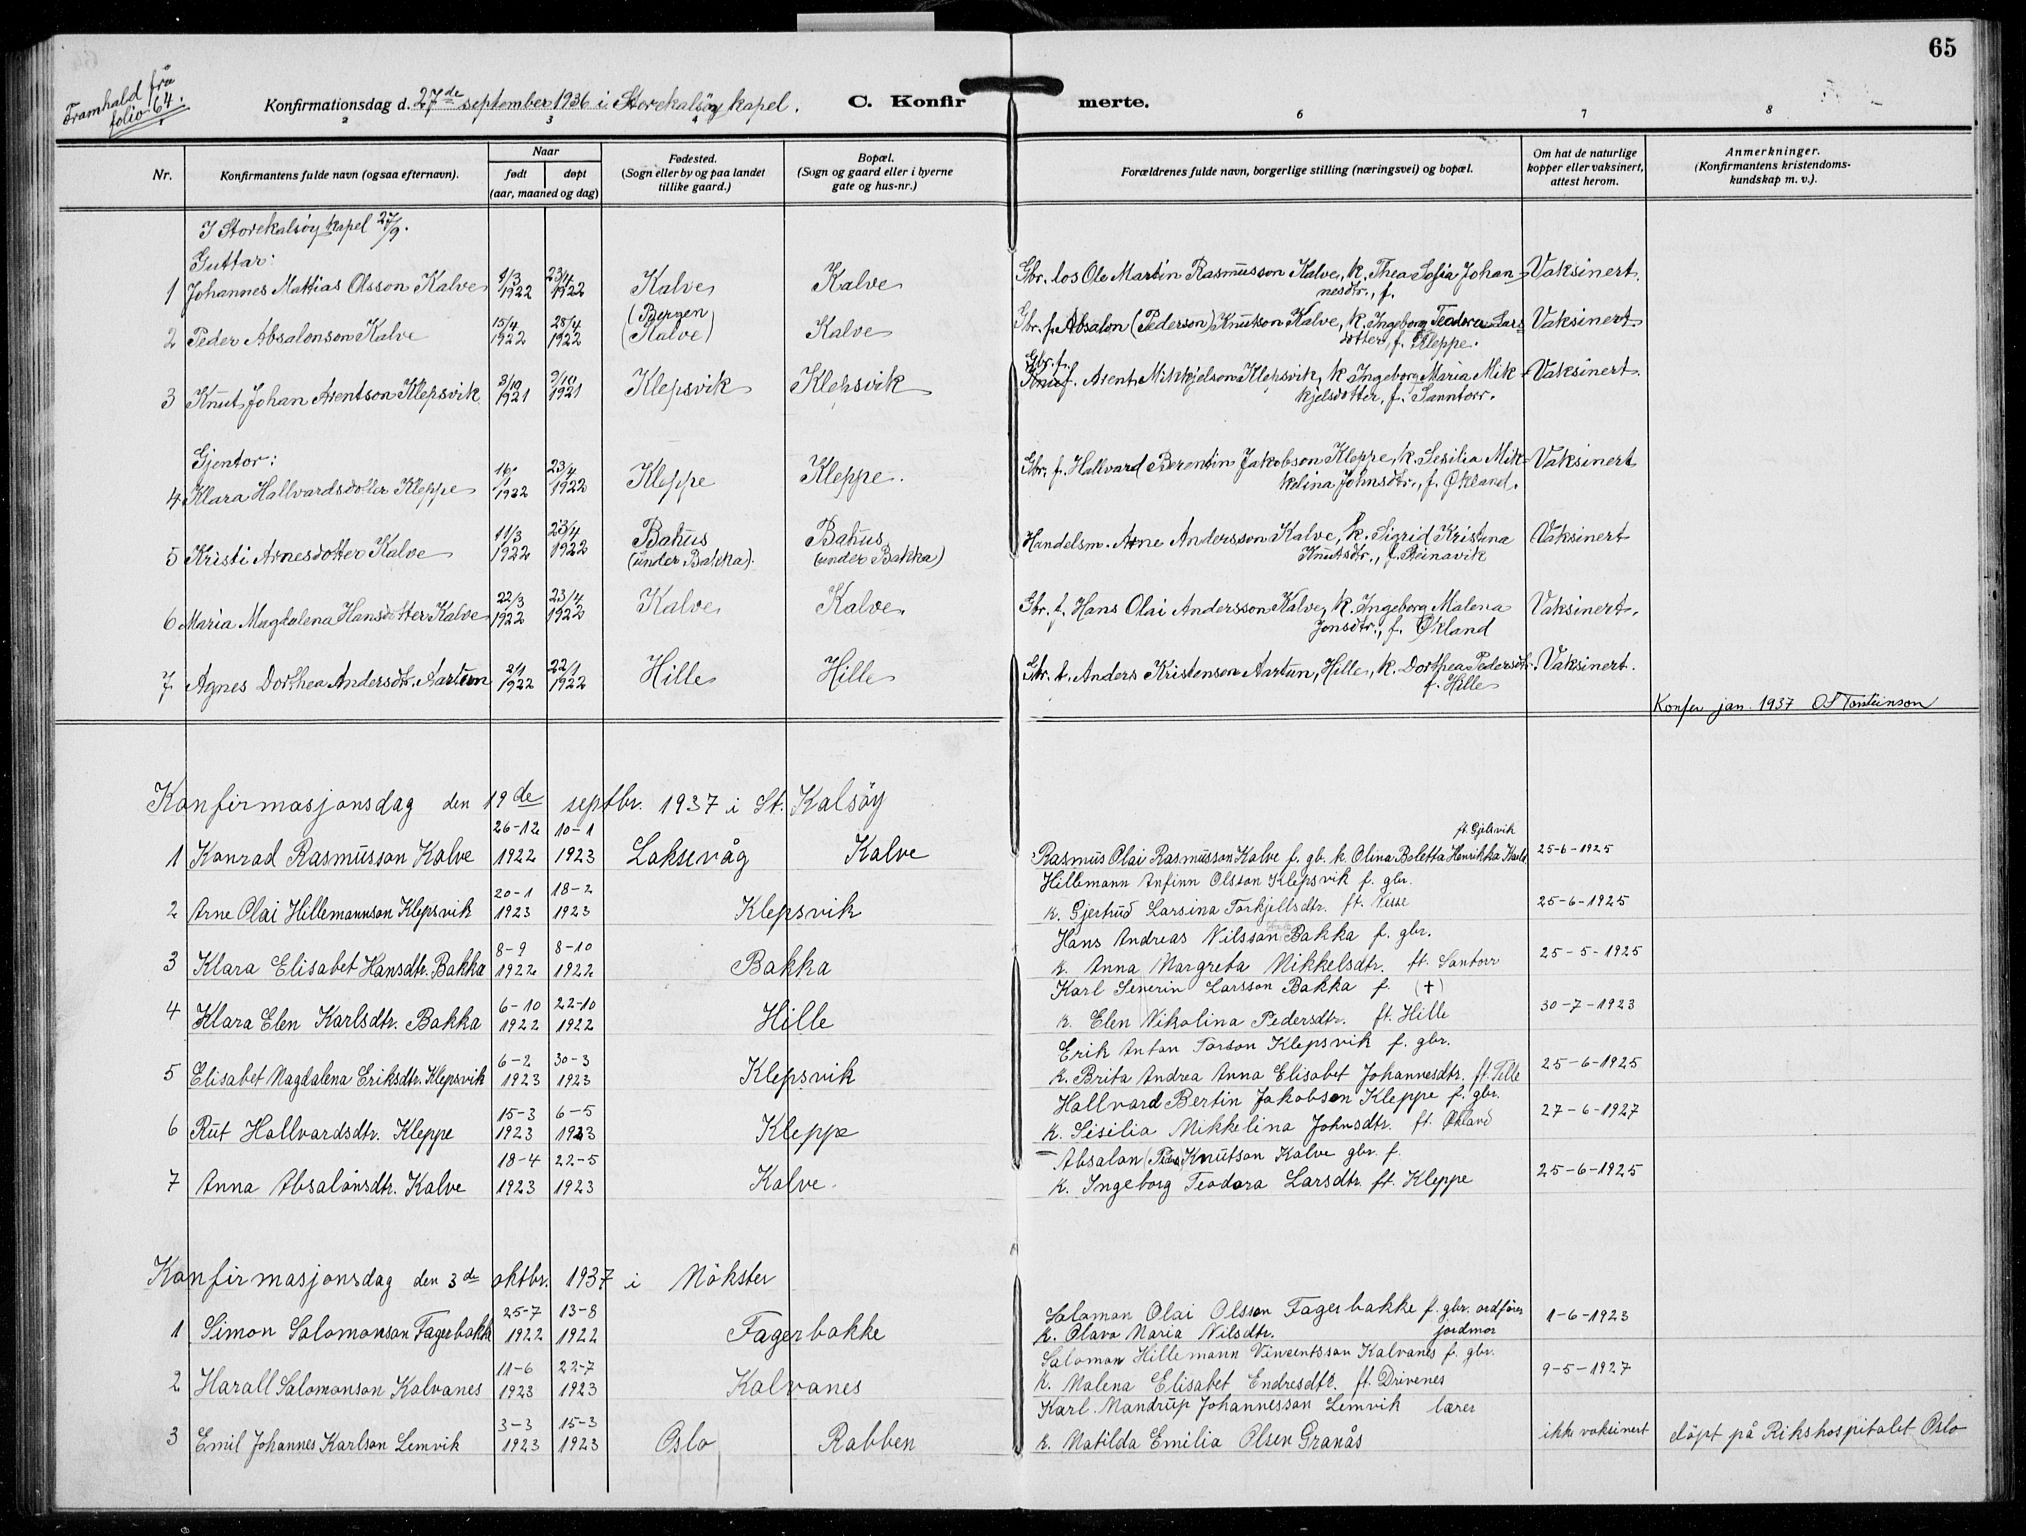 65
Framhald frå
folio 64.
Konfirmationsdag d. 27de september 1936 i Storekalsöy kapel. C. Konfirmerte.
1 2 3 4 6 7 8
Nr. Konfirmantens fulde navn (ogsaa efternavn). Naar født døpt (aar, maaned og dag) Fødested. (Sogn eller by og paa landet tillike gaard.) Bopæl. (Sogn og gaard eller i byerne gate og hus-nr.) Forældrenes fulde navn, borgerlige stilling (næringsvei) og bopæl. Om hat de naturlige kopper eller vaksinert, attest herom. Anmerkninger. (Konfirmantens kristendoms-kundskap m. v.).
I Storekalsöy kapel 27/9.
Guttar:
1 Johannes Mattias Olsson Kalve 9/3 1922 23/4 1922 Kalve Kalve Gbr. los Ole Martin Rasmusson Kalve, k. Thea Sofia Johan- Vaksinert.
nesdtr., f.
2 Peder Absalonson Kalve 15/4 1922 28/4 1922 (Bergen) (Kalve) Kalve Gbr. f. Absalon (Pederson) Knutson Kalve, k. Ingeborg Teodora Lars- Vaksinert.
dotter, f. Kleppe.
3 Knut Johan Arentson Klepsvik 3/10 1921 9/10 1921 Klepsvik Klepsvik Gbr. f. Arent Mikkjelson Klepsvik, k. Ingeborg Maria Mik- Vaksinert.
kjelsdotter, f. Sanntorr.
Gjentor:
4 Klara Hallvardsdotter Kleppe 16/1 1922 23/4 1922 Kleppe Kleppe. Gbr. f. Hallvard Berentin Jakobson Kleppe, k. Sesilia Mik- Vaksinert
kelina Johnsdtr., f. Økland.
5 Kristi Arnesdotter Kalve 11/3 1922 23/4 1922 Bahus (under Bakka). Bahus (under Bakka) Handelsm. Arne Andersson Kalve, k. Sigrid Kristina Vaksinert
Knutsdtr., f. Steinavik
6 Maria Magdalena Hansdotter Kalve 22/3 1922 23/4 1922 Kalve Kalve Gbr. f. Hans Olai Andersson Kalve, k. Ingeborg Malena Vaksinert.
Jonsdtr., f. Økland
7 Agnes Dorthea Andersdtr. Aartun 2/1 1922 22/1 1922 Hille Hille Gbr. f. Anders Kristenson Aartun, Hille, k. Dorthea Pedersdtr. Vaksinert.
f. Hille
Konfer jan. 1937 O S Torsteinson
Konfirmasjonsdag den 19de septbr. 1937 i St. Kalsöy
1 Konrad Rasmusson Kalve 26-12 1922 10-1 1923 Laksevåg Kalve Rasmus Olai Rasmusson Kalve f. gb. k. Olina Boletta Henrikka Karls ft. Gjelsvik 25-6-1925
Hillemann Anfinn Olsson Klepsvik f. gbr.
2 Arne Olai Hillemannson Klepsvik 20-1 1923 18-2 1923 Klepsvik k. Gjertrud Larsina Torkjellsdtr. ft. Nesse 25-6-1925
Hans Andreas Nilsson Bakka f. gbr.
3 Klara Elisabet Hansdtr. Bakka 8-9 1922 8-10 1922 Bakka k. Anna Margreta Mikkelsdtr. ft. Santorr 25-5-1925
Karl Severin Larsson Bakka f. (+)
4 Klara Elen Karlsdtr. Bakka 6-10 1922 22-10 1922 Hille k. Elen Nikolina Pedersdtr. ft. Hille 30-7-1923
Erik Anton Torson Klepsvik f. gbr.
5 Elisabet Magdalena Eriksdtr. Klepsvik 6-2 1923 30-3 1923 Klepsvik k. Brita Andrea Anna Elisabet Johannesdtr. ft. Telle 25-6-1925
Hallvard Bertin Jakobson Kleppe f. gbr.
6 Rut Hallvardsdtr. Kleppe 15-3 1923 6-5 1923 Kleppe k. Sisilia Mikkelina Johnsdtr. ft. Økland 27-6-1927
Absalon (Peders) Knutson Kalve gbr. f.
7 Anna Absalonsdtr. Kalve 18-4 1923 22-5 1923 Kalve. k. Ingeborg Teodora Larsdtr. ft. Kleppe 25-6-1925
Konfirmasjonsdag den 3de oktbr. 1937 i Mökster
Salomon Olai Olsson Fagerbakke f. gbr. ordfører
1 Simon Salomonson Fagerbakk 25-7 1922 13-8 1922 Fagerbakke k. Olava Maria Nilsdtr. jordmor 1-6-1923
Salomon Hillemann Vincentsson Kalvanes f. gbr.
2 Harall Salomonson Kalvanes 11-6 1923 22-7 1923 Kalvanes k. Malena Elisabet Endresdtr. ft. Drivenes 9-5-1927
Karl Mandrup Johannesson Lemvik lærer
3 Emil Johannes Karlson Lemvik 3-3 1923 15-3 1923 Oslo Rabben k. Matilda Emilia Olsen Granås ikke vaksinert döpt på Rikshospitalet Oslo